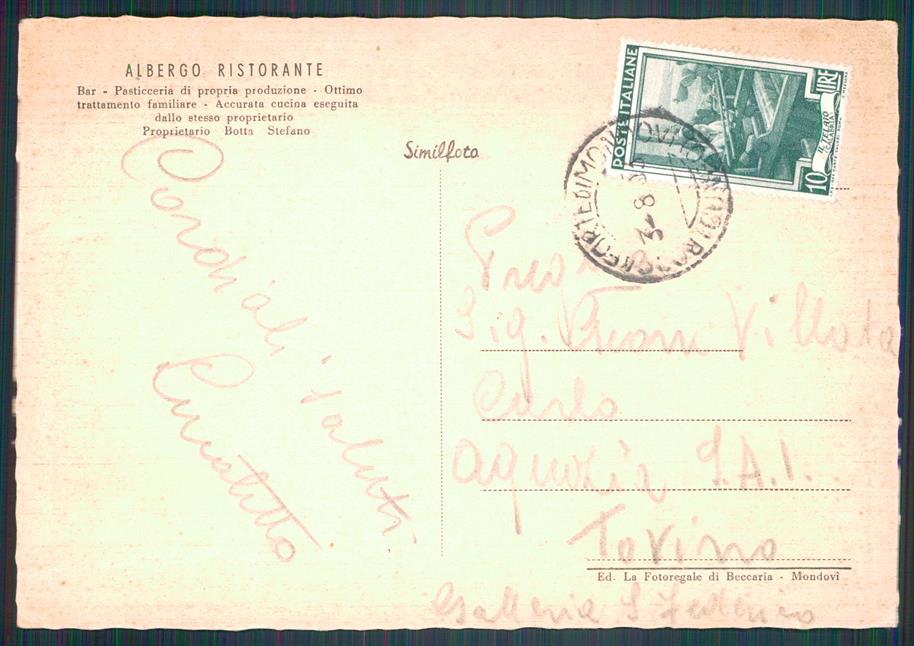 ALBERGO RISTORANTE
Bar - Pasticceria di propria produzione - Ottimo
trattamento familiare - Accurata cucina eseguita
dallo stesso proprietario
Proprietario Botta Stefano
Similfoto
POSTE ITALIANE
LIRE
10
IL TELAIO
CALABRIA
ROCCAFORTE DI MONDOVI
Cordiali saluti
Sig. Villata
Carlo
S.A.I.
Torino
Galleria S Federico
Ed. La Fotoregale di Beccaria - Mondovì